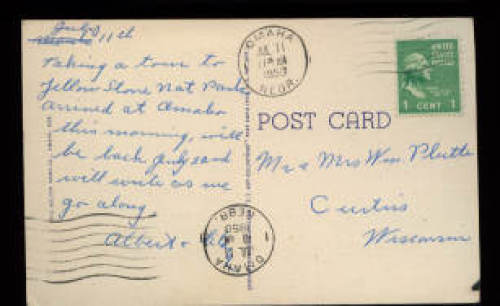 July 11th
Taking a tour to
Yellow Stone Nat Park
arrived at Omaha
this morning, will
be back July 22nd
will write as we
go along
Albert
OMAHA
JUL 11
1950
NEBR.
POST CARD
1 CENT 1
Mr & Mrs Wm. Plitte
Curtiss
Wisconsin
OMAHA
JUL
1950
NEBR.